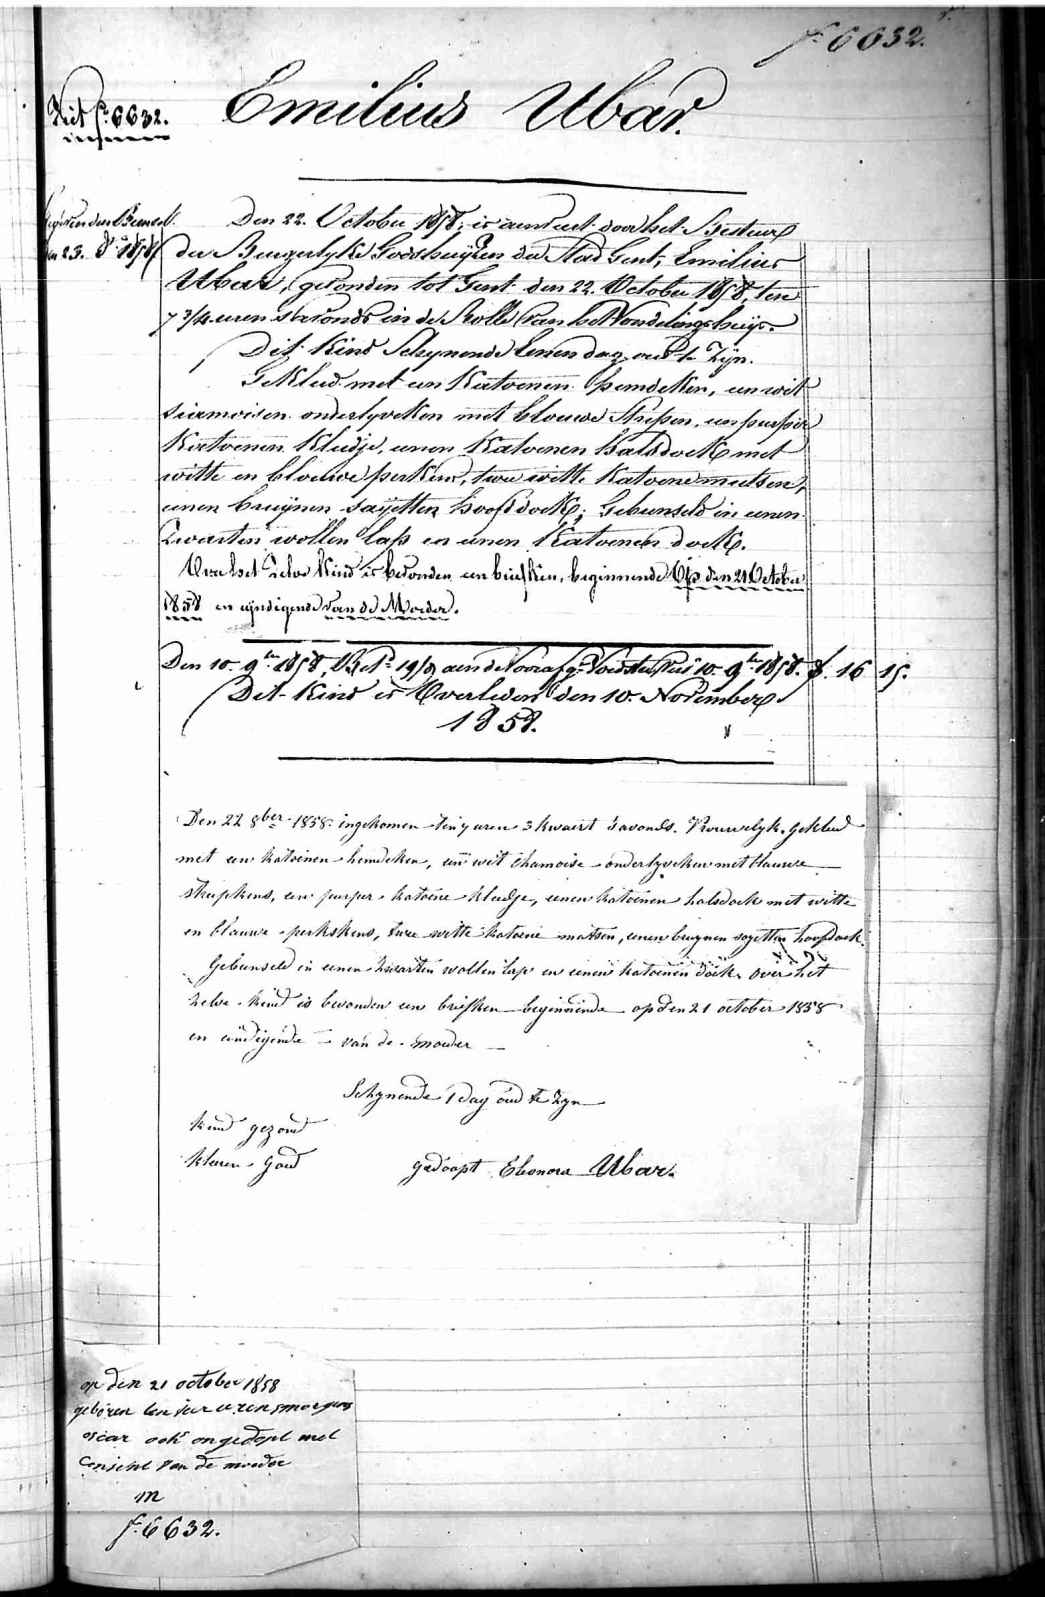 f° 6632.
Emilius Ubar.
Ziet f° 6632.
den 23. d° 1858
Den 22. October 1858, is aenveert door het Bestuur
der Burgerlyke Godshuyzen der Stad Gent, Emilius
Ubar, gevonden tot Gent den 22. October 1858, ten
7 3/4 uren s'avonds in de Rolle van het Vondelingshuys.
Dit Kind Schynende eenen dag oud te Zyn.
Gekleed met een Katoenen hemdeken, een wit
siamoisen onderlyveken met blouwe Stripen, een purper
Katoenen Kleedje, eenen Katoenen halsdoek met
witte en blouwe perkens, twee witte Katoene mutsen,
eenen bruynen sayetten hoofdoek; Gebunseld in eenen
Zwarten wollen lap en eenen Katoenen doek.
Over het Zelve Kind is bevonden een briefken, beginnende Op den 21 October
1858 en eyndigende van de Moeder.
Den 10. 9bre 1858, Bet. 19/9 aen de Voorafg. Voedster, Reis 10. 9bre 1858. f. 16 15.
Dit Kind is Overleden den 10. November
1858.
Den 22 8ber 1858 ingekomen ten 7 uren 3 kwaert s'avonds. Vrouwelyk. Gekleed
met een katoenen hemdeken, een wit chamoise onderlyveken met blauwe
streepkens, een purper katoene kleedje, eenen katoenen halsdoek met witte
en blauwe perkskens, twee witte katoene mutsen, eenen bruynen sayetten hoofdoek.
Gebunseld in eenen zwarten wollen lap en eenen katoenen doek over het
zelve kind is bevonden een briefken beginnende op den 21 october 1858
en eindigende - van de moeder -
Schynende 1 dag oud te Zyn
kind gezond
kleeren Goed
gedoopt Eleonora Ubar.
op den 21 october 1858
geboren ten uren smorgens
oscar ook ongedopt met
consent van de moeder
m
f° 6632.